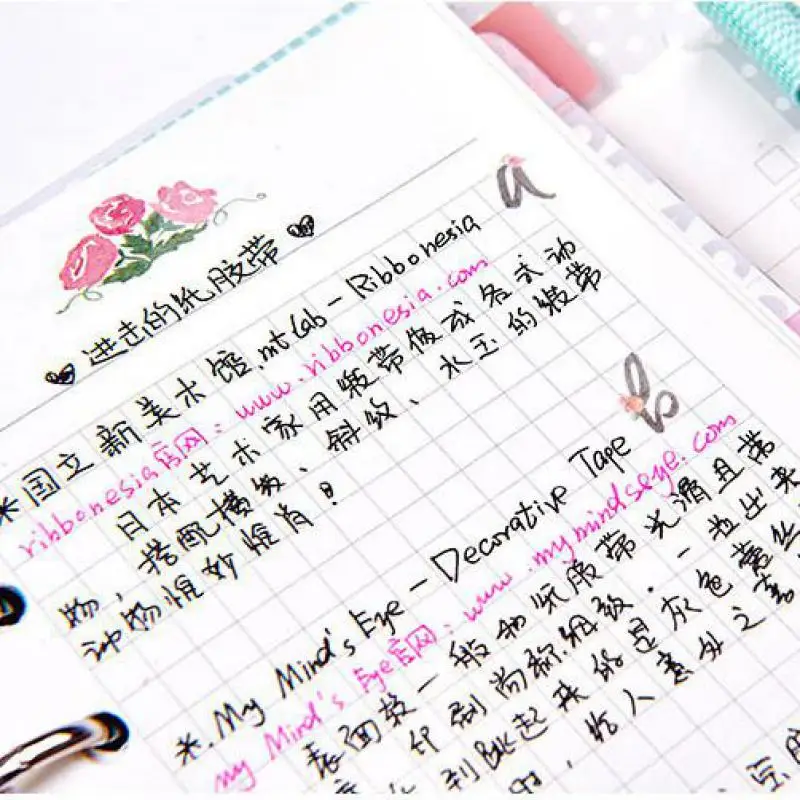 进击的纸胶带
a
※国立新美术馆.mt lab - Ribbonesia
ribbonesia官网: www.ribbonesia.com
日本艺术家用缎带做成各式动
物,搭配横纹、斜纹、水玉的缎带
动物惟妙惟肖!
b
※.My Mind's Eye - Decorative Tape
my Mind's Eye官网: www.mymindseye.com
表面较一般和纸胶带光滑且带
印刷尚称细致.一拉出来
到跳起来的是灰色蕾丝
,给人意外之喜